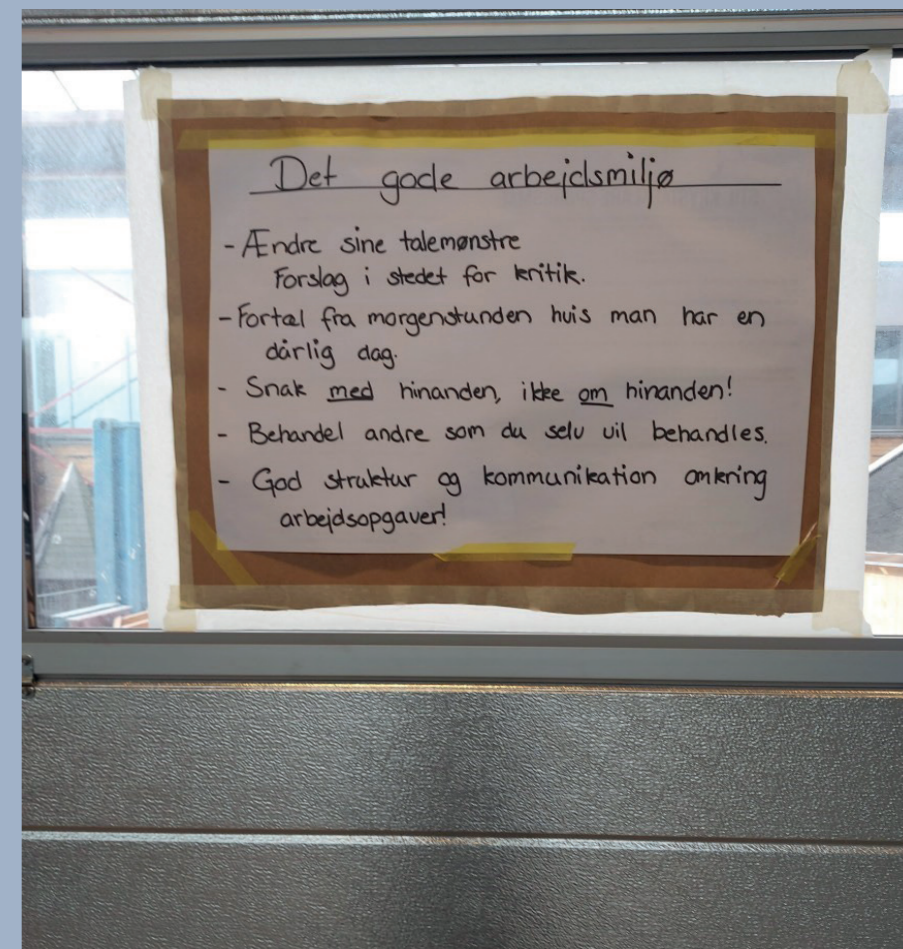 Det gode arbejdsmiljø
- Ændre sine talemønstre
Forslag i stedet for kritik.
- Fortæl fra morgenstunden hvis man har en
dårlig dag.
- Snak med hinanden, ikke om hinanden!
- Behandel andre som du selv vil behandles.
- God struktur og kommunikation omkring
arbejdsopgaver!